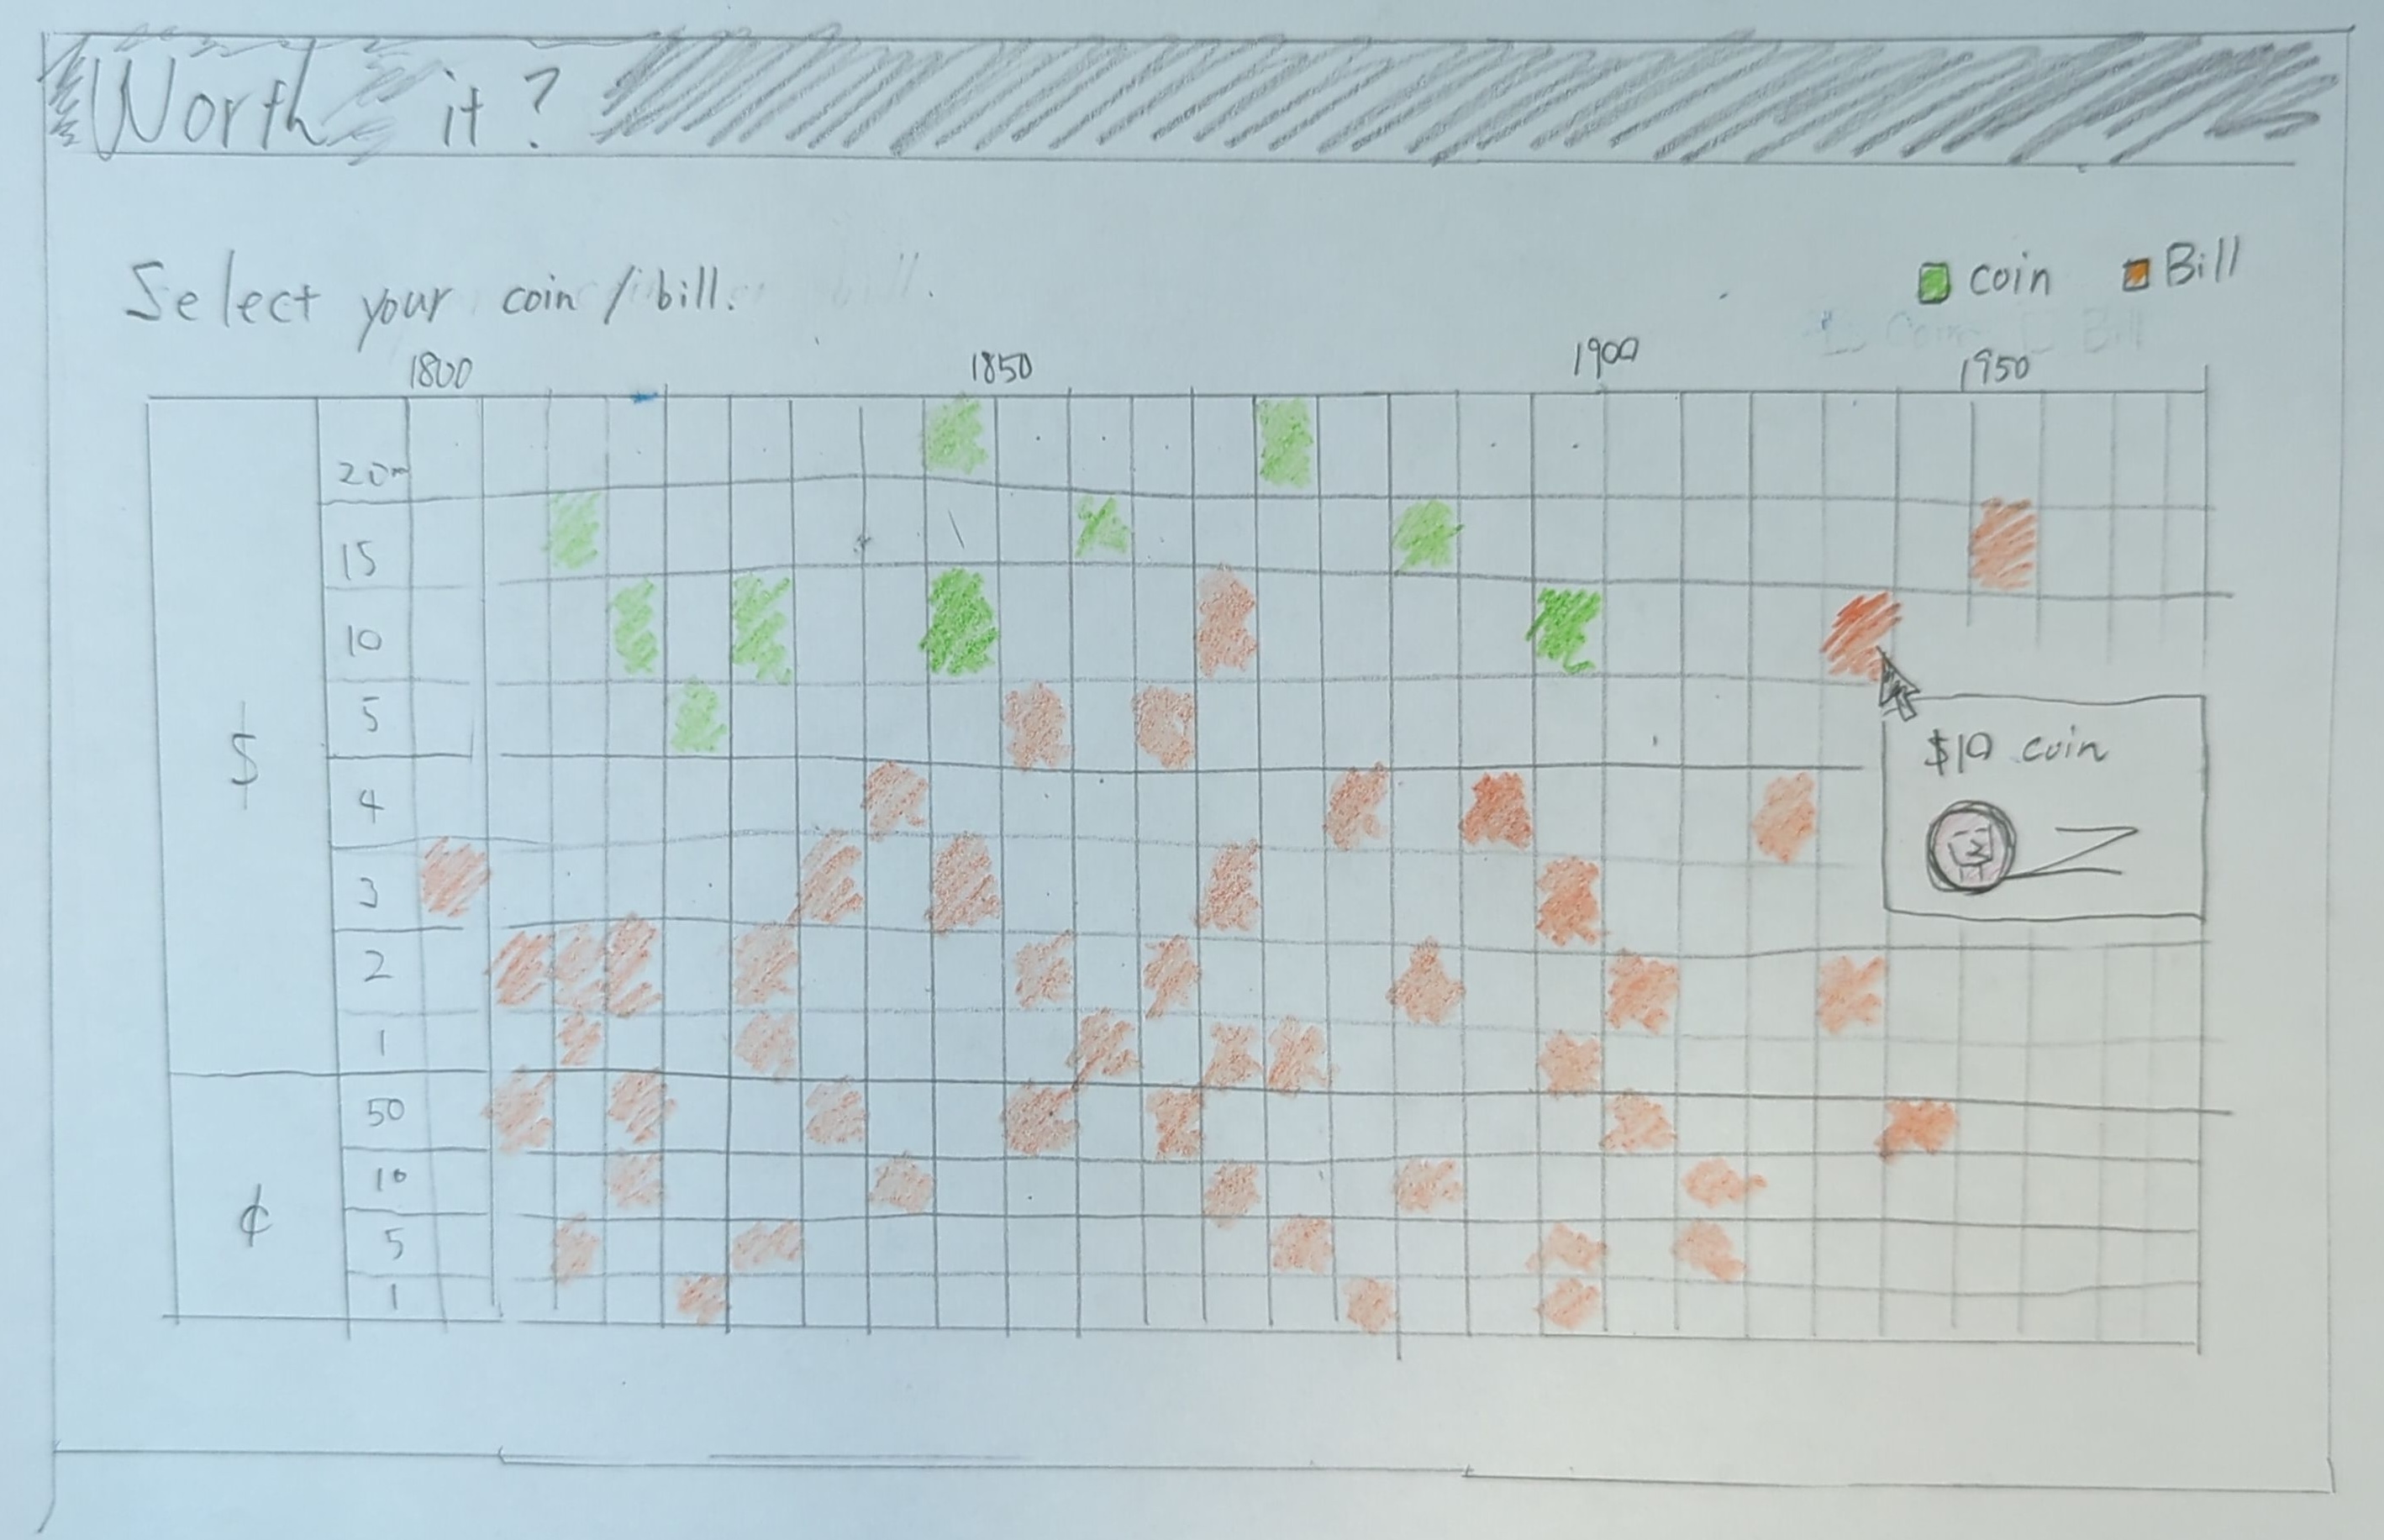 Worth it?
Select your coin / bill.
coin Bill
1800 1850 1900 1950
$
20
15
10
5
4
3
2
1
¢
50
10
5
1
$10 coin